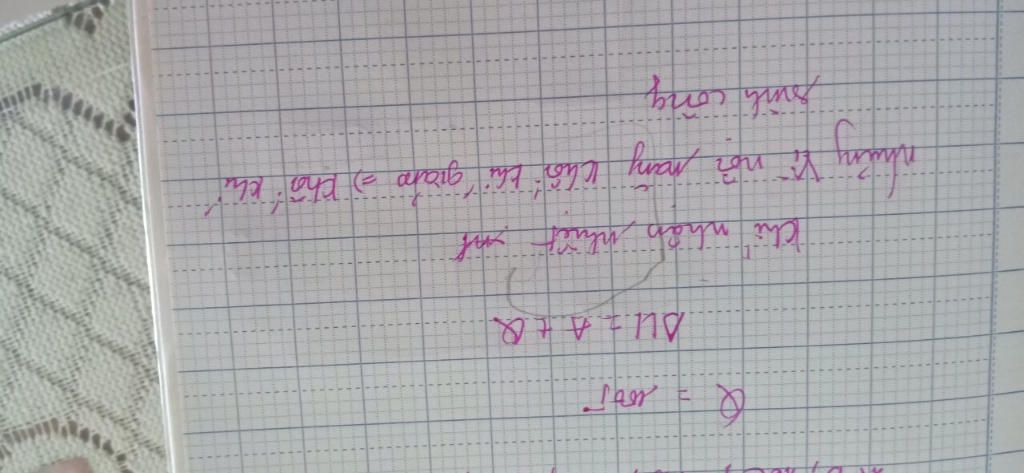 Q = 100J
ΔU = A + Q
khí nhận nhiệt
nhưng vì nội năng khối khí giảm => khối khí
sinh công